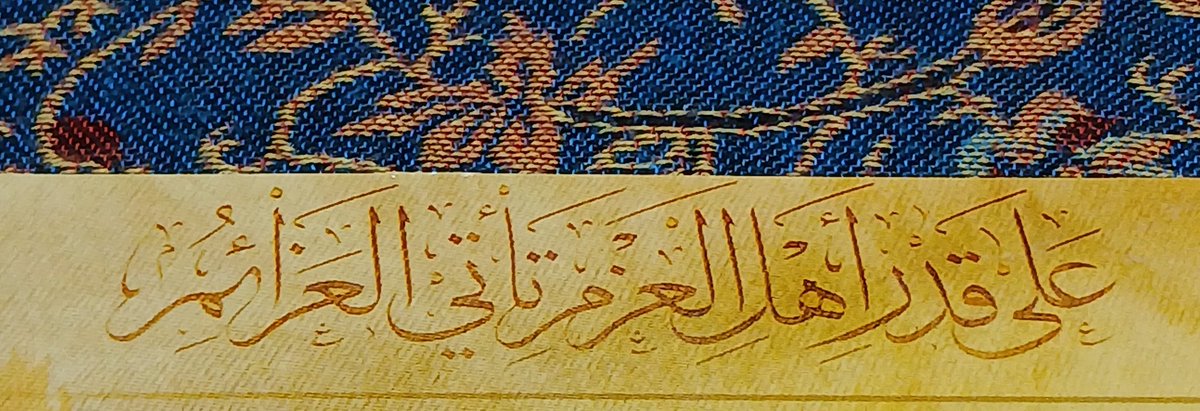 على قدر أهل العزم تأتي العزائم